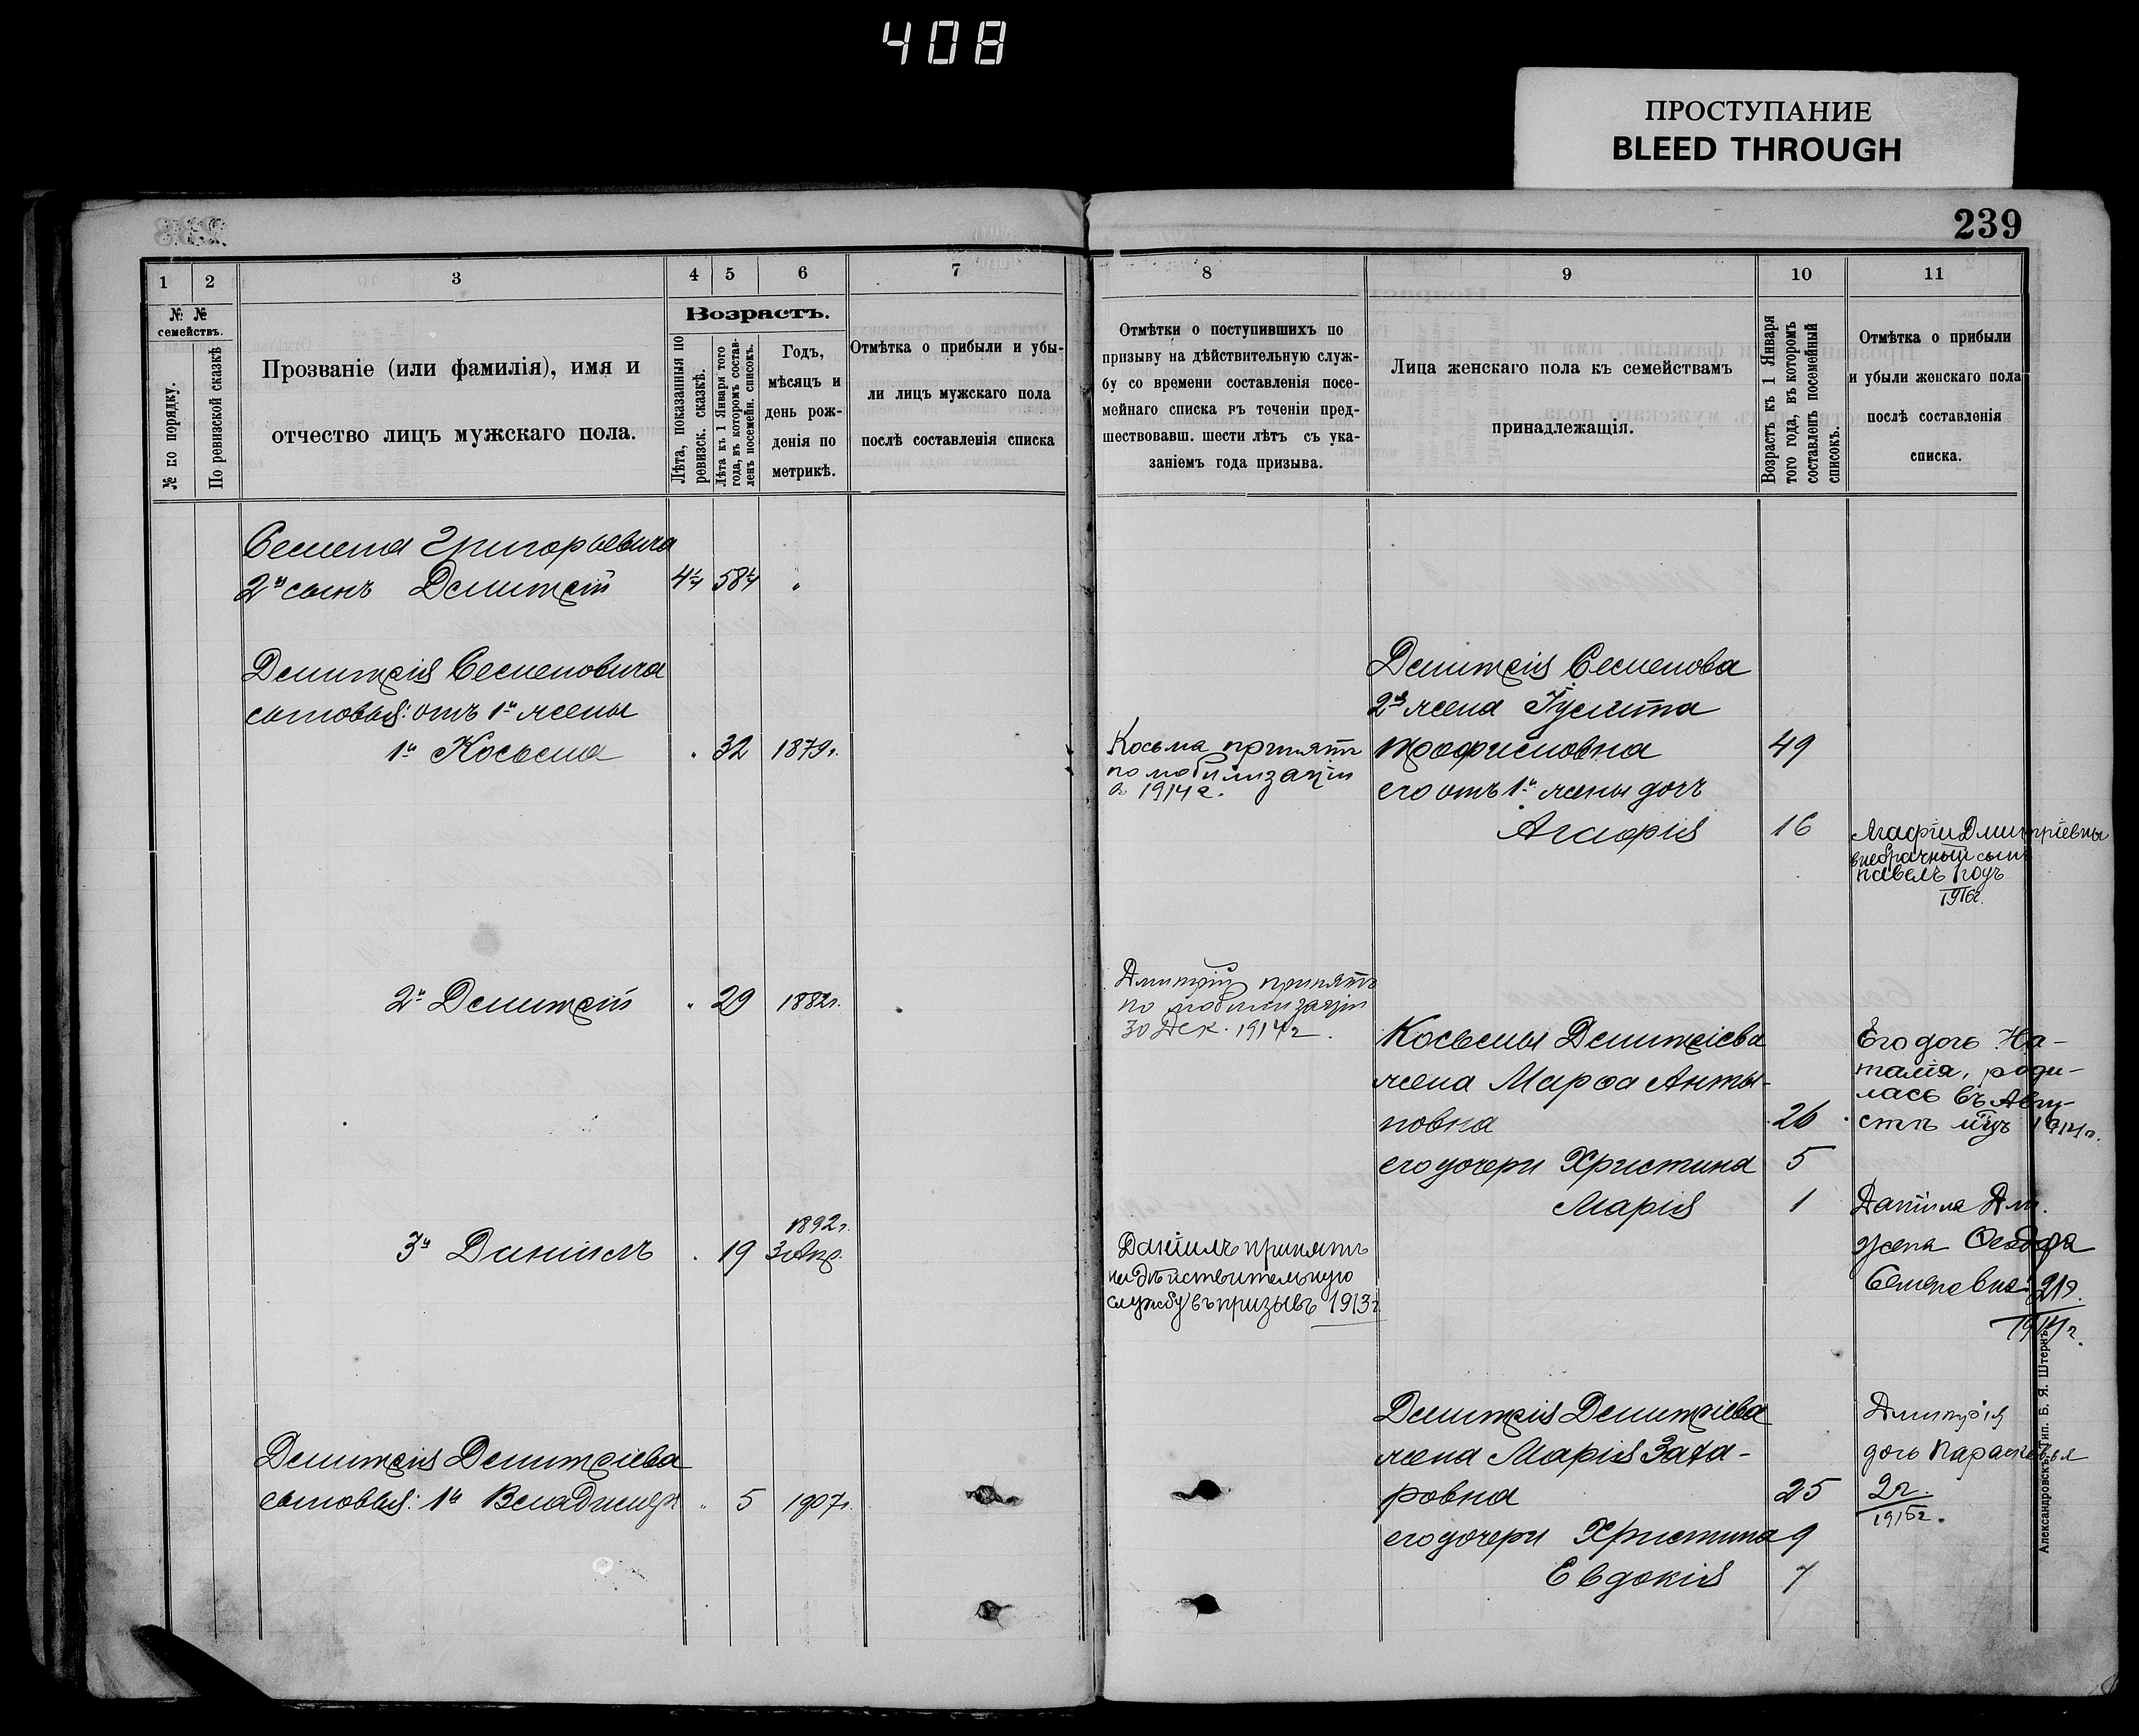 408
ПРОСТУПАНИЕ
BLEED THROUGH
239
1
2
3
4
5
6
7
№ №
семействъ.
№ по порядку.
По ревизской сказкѣ
Прозваніе (или фамилія), имя и
отчество лицъ мужскаго пола.
Возрастъ.
Лѣта, показанныя по
ревизск. сказкѣ.
Лѣта къ 1 Января того
года, въ которомъ состав-
ленъ посемейн. списокъ.
Годъ,
мѣсяцъ и
день рож-
денія по
метрикѣ.
Отмѣтка о прибыли и убы-
ли лицъ мужскаго пола
послѣ составленія списка
Семена Григорьевича
2й сынъ Димитрій 58
Димитрія Семеновича
сыновья: отъ 1й жены
1й Косьма 32 1879г.
2й Димитрій 29 1882г.
1892г.
3й Даніилъ 19 3 Апр.
Димитрія Димитріева
сыновья: 1й Владимиръ 5 1907г.
8
9
10
11
Отмѣтки о поступившихъ по
призыву на дѣйствительную служ-
бу со времени составленія посе-
мейнаго списка въ теченіи пред-
шествовавш. шести лѣтъ съ ука-
заніемъ года призыва.
Лица женскаго пола къ семействамъ
принадлежащія.
Возрастъ къ 1 Января
того года, въ которомъ
составленъ посемейный
списокъ.
Отмѣтка о прибыли
и убыли женскаго пола
послѣ составленія
списка.
Косьма принятъ
по мобилизаціи
в 1914 г.
Дмитрій принятъ
по мобилизаціи
30 Дек. 1914 г.
Даніилъ принятъ
на дѣйствительную
службу въ призывъ 1913 г.
Димитрія Семенова
2я жена Іулита
Трофимовна 49
его отъ 1й жены дочь
Агафія 16
Косьмы Димитріева
жена Марфа Анты-
повна 26
его дочери Христина 5
Марія 1
Димитрія Димитріева
жена Марія Заха-
ровна 25
его дочери Христина 9
Евдокія 7
Агафіи Дмитріевны
внебрачный сынъ
Павелъ 1 годъ
1916г.
Его дочь На-
талія, роди-
лась въ Авгу-
стѣ мѣс. 1914 г.
Даніила Дм.
жена Ѳеодора
Семеновна 21
1914 г.
Дмитрія
дочь Параскевья
2 г.
1915 г.
Александровскъ, Тип. Б. Я. Штернъ